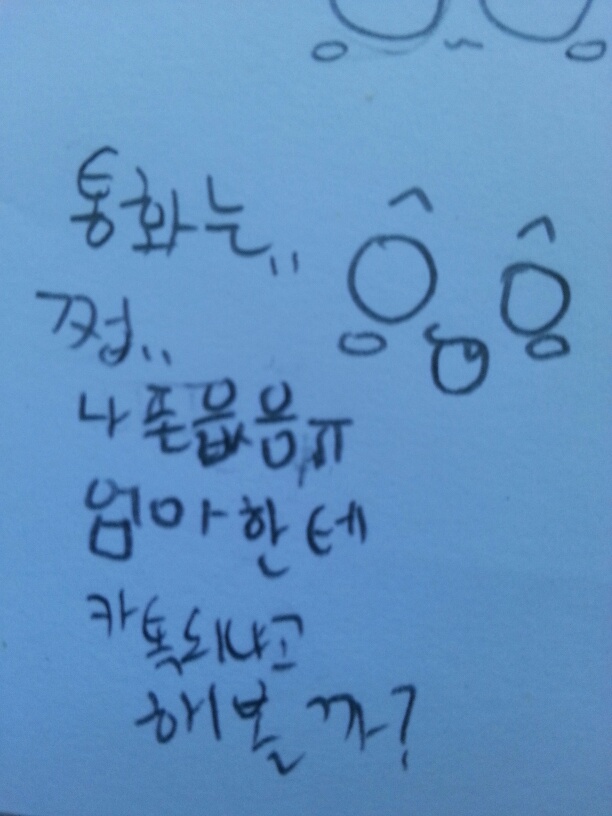 통화는,,
점,,
나폰없음ㅠ
엄마한테
카톡하라고
해볼까?